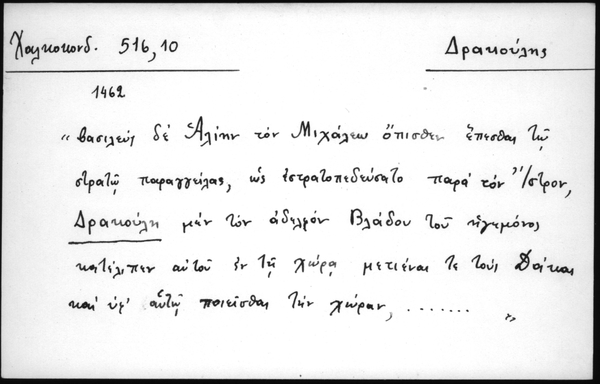 Χαλκοκονδ. 516,10
Δρακούλης
1462
"βασιλεύς δὲ Ἀλίην τὸν Μιχάλεω ὄπισθεν ἕπεσθαι τῷ
στρατῷ παραγγείλας, ὡς ἐστρατοπεδεύσατο παρὰ τὸν Ἴστρον,
Δρακούλη μὲν τὸν ἀδελφὸν Βλάδου τοῦ ἡγεμόνος
κατέλιπεν αὐτοῦ ἐν τῇ χώρᾳ μετιέναι τε τοὺς Δάκας
καὶ ὑφ' αὑτῷ ποιεῖσθαι τὴν χώραν, ....... "